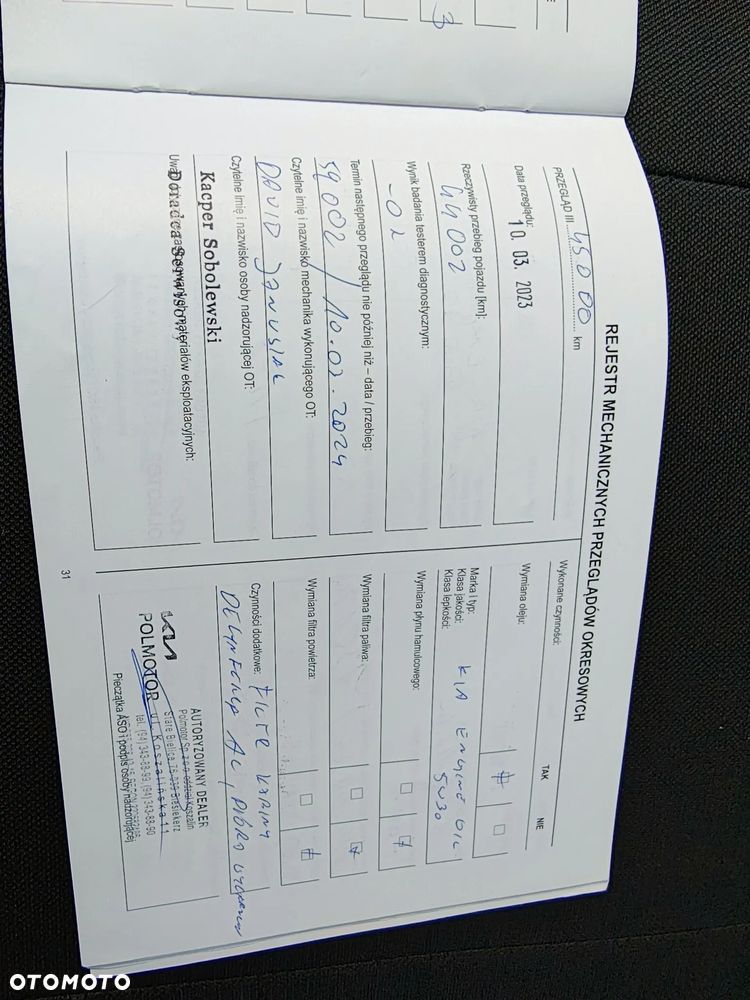 3
REJESTR MECHANICZNYCH PRZEGLĄDÓW OKRESOWYCH
PRZEGLĄD III 45000 km
Data przeglądu:
10. 03. 2023
Rzeczywisty przebieg pojazdu [km]:
44002
Wynik badania testerem diagnostycznym:
Termin następnego przeglądu nie później niż – data / przebieg:
59002 / 10.03.2024
Czytelne imię i nazwisko mechanika wykonującego OT:
DAVID JANUSIAK
Czytelne imię i nazwisko osoby nadzorującej OT:
Kacper Sobolewski
Doradca Serwisowy
materiałów eksploatacyjnych:
Wykonane czynności:
TAK NIE
Wymiana oleju:
Marka i typ:
Klasa jakości: KIA ENGINE OIL
Klasa lepkości: 5W30
Wymiana płynu hamulcowego:
Wymiana filtra paliwa:
Wymiana filtra powietrza:
Czynności dodatkowe: FILTR KABINY
AC, PIÓRA
AUTORYZOWANY DEALER
Polmotor Sp. z o.o. Oddział Koszalin
Stare Bielice 76-039 Biesiekierz
KIA
POLMOTOR ul. Koszalińska 11
tel. (94) 343-88-99, (94) 343-88-90
Pieczątka ASO i podpis osoby nadzorującej
31
OTOMOTO